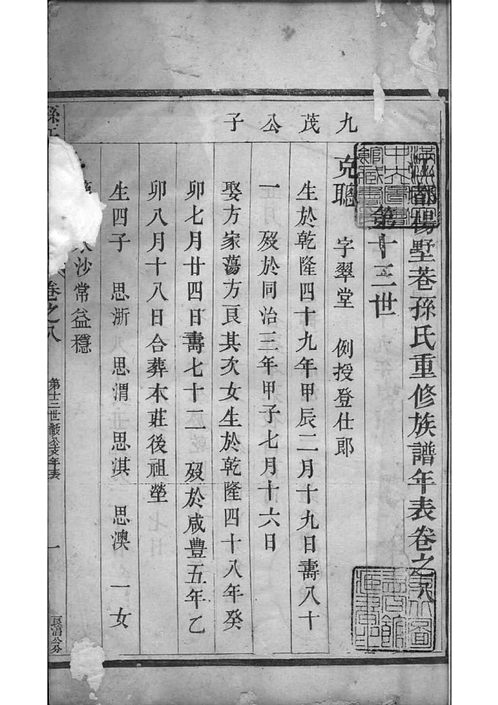 江都楊墅巷孫氏重修族譜年表卷之八
第十三世
九茂公子
克聰 字翠堂 例授登仕郎
生於乾隆四十九年甲辰二月十九日壽八十
一歿於同治三年甲子七月十六日
娶方家蕩方 其次女生於乾隆四十八年癸
卯七月廿四日壽七十二歿於咸豐五年乙
卯八月十八日合葬本莊後祖塋
生四子 思浙 思渭 思淇 思澳 一女
沙常益穩
孫
卷之八
第十三世
年表
一